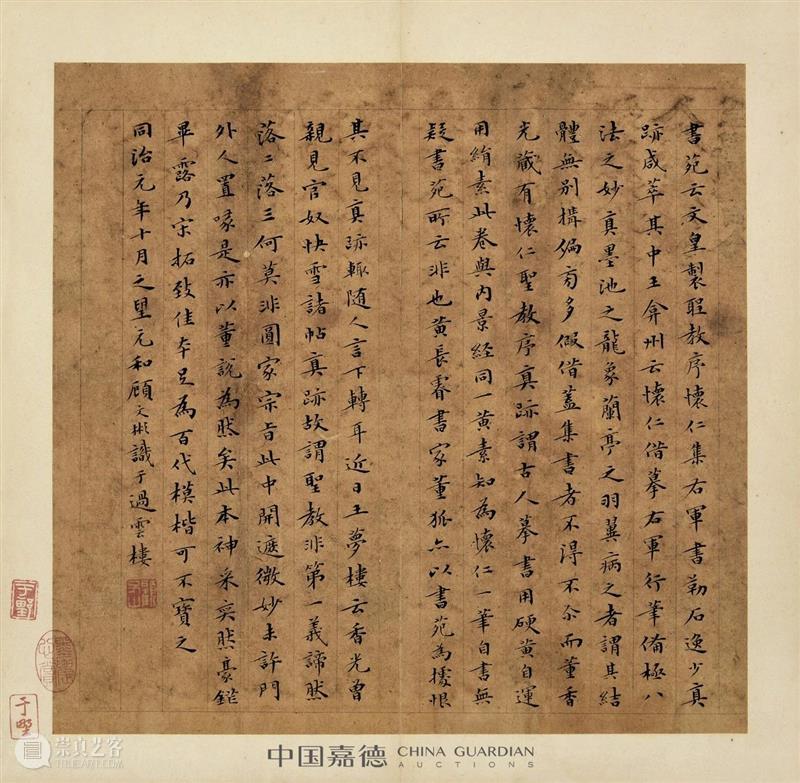 書苑云文皇製聖教序懷仁集右軍書勒石逸少真
跡咸萃其中王弇州云懷仁借摹右軍行筆備極八
法之妙真墨池之龍象蘭亭之羽翼病之者謂其結
體無別搆偏旁多假借蓋集書者不得不尒而董香
光藏有懷仁聖教序真跡謂古人摹書用硬黃自運
用絹素此卷與內景經同一黃素知為懷仁一筆自書無
疑書苑所云非也黃長睿書家董狐亦以書苑為據恨
其不見真跡輒隨人言下轉耳近日王夢樓云香光曾
親見官奴快雪諸帖真跡故謂聖教非第一義諦然
落二落三何莫非圓家宗旨此中開遮微妙未許門
外人置喙是亦以董說為然矣此本神采奕然豪鋩
畢露乃宋拓致佳本足為百代模楷可不寶之
同治元年十月之望元和顧文彬識于過雲樓
于野
崇真艺客
中国嘉德 CHINA GUARDIAN
AUCTIONS